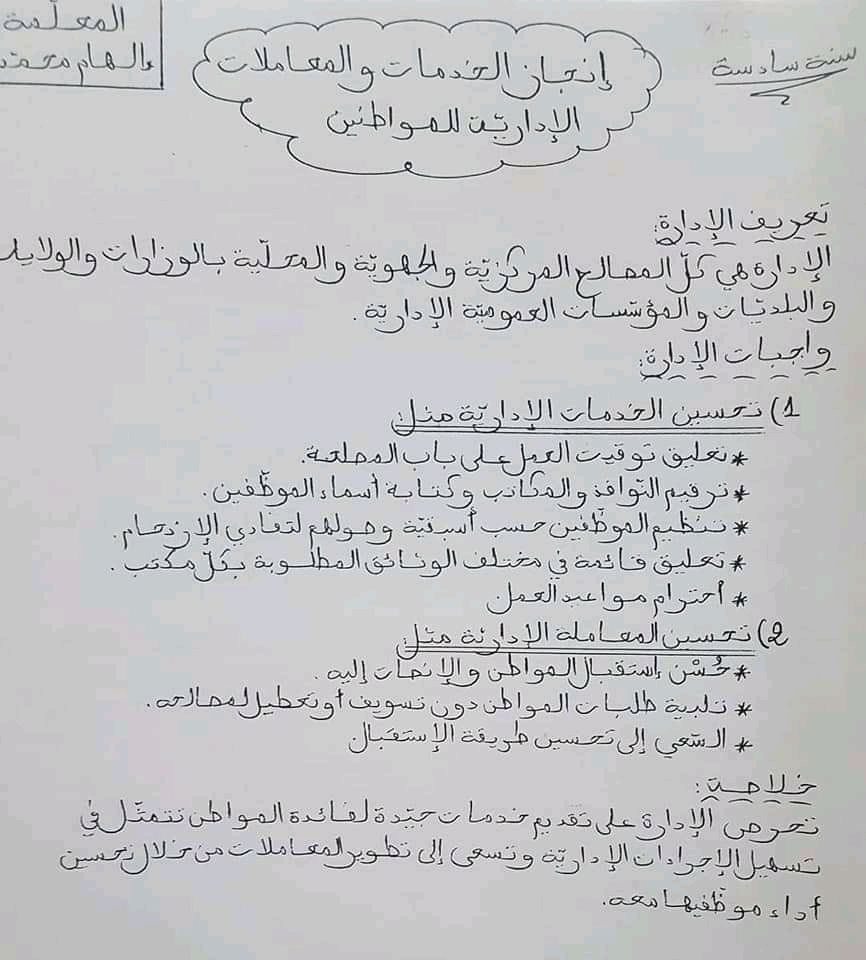 سنة سادسة
المعلّمة
إلهام محمد
إنجاز الخدمات والمعاملات
الإداريّة للمواطنين
تعريف الإدارة:
الإدارة هي كلّ المصالح المركزيّة والجهويّة والمحلّية بالوزارات والولايات
والبلديّات والمؤسّسات العموميّة الإداريّة.
واجبات الإدارة:
1) تحسين الخدمات الإداريّة مثل:
* تعليق توقيت العمل على باب المصلحة.
* ترقيم النّوافذ والمكاتب وكتابة أسماء الموظّفين.
* تنظيم الموظّفين حسب أسبقيّة وصولهم لتفادي الإزدحام.
* تعليق قائمة في مختلف الوثائق المطلوبة بكلّ مكتب.
* أحترام مواعيد العمل
2) تحسين المعاملة الإداريّة مثل:
* حُسْن إستقبال المواطن والإنصات إليه.
* تلبية طلبات المواطن دون تسويف أو تعطيل لمصالحه.
* السّعي إلى تحسين طريقة الإستقبال
خلاصة:
تحرص الإدارة على تقديم خدمات جيّدة لفائدة المواطن تتمثّل في
تسهيل الإجراءات الإداريّة وتسعى إلى تطوير المعاملات من خلال تحسين
أداء موظّفيها معه.